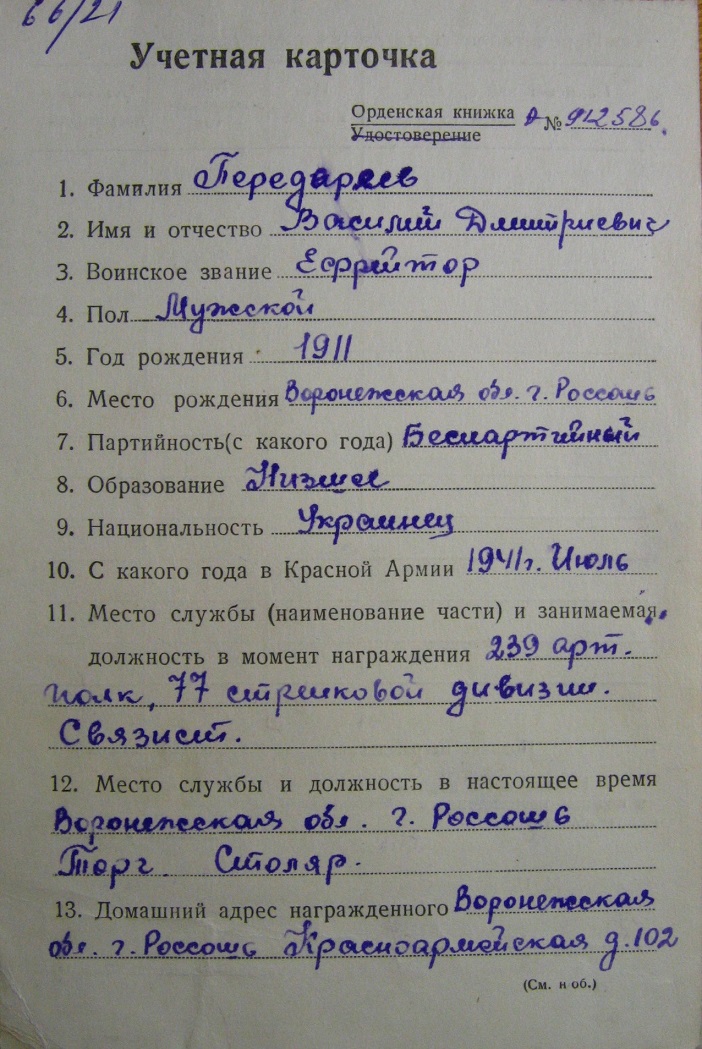 66/21
Учетная карточка
Орденская книжка А № 912586
Удостоверение
1. Фамилия
2. Имя и отчество Василий Дмитриевич
3. Воинское звание Ефрейтор
4. Пол Мужской
5. Год рождения 1911
6. Место рождения Воронежская обл. г. Россошь
7. Партийность(с какого года) Беспартийный
8. Образование Низшее
9. Национальность Украинец
10. С какого года в Красной Армии 1941г. Июль
11. Место службы (наименование части) и занимаемая
должность в момент награждения 239 арт.
полк, 77 стрелковой дивизии.
Связист.
12. Место службы и должность в настоящее время
Воронежская обл. г. Россошь
Торг Столяр.
13. Домашний адрес награжденного Воронежская
обл. г. Россошь Красноармейская д. 102
(См. н об.)